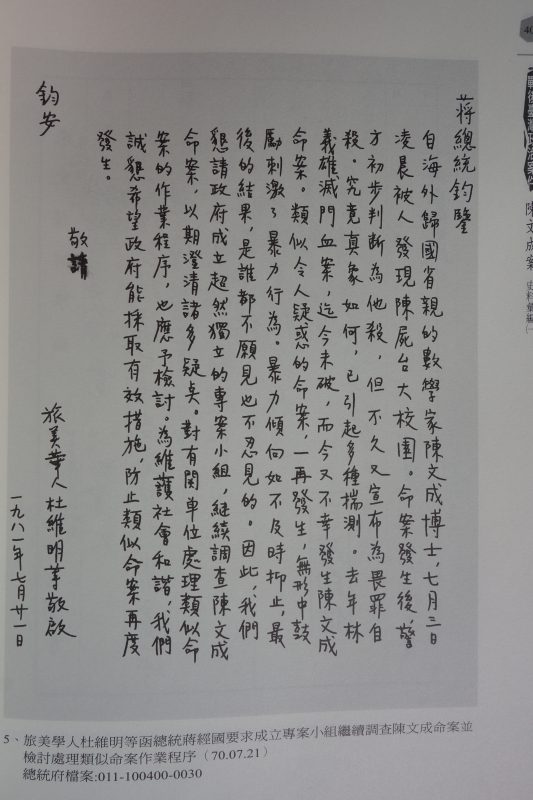 蔣總統鈞鑒
自海外歸國省親的數學家陳文成博士，七月三日
凌晨被人發現陳屍台大校園。命案發生後，警
方初步判斷為他殺，但不久又宣布為畏罪自
殺。究竟真象如何，已引起多種揣測。去年林
義雄滅門血案，迄今未破，而今又不幸發生陳文成
命案。類似令人疑惑的命案，一再發生，無形中鼓
勵刺激了暴力行為。暴力傾向如不及時抑止，最
後的結果，是誰都不願見也不忍見的。因此，我們
懇請政府成立超然獨立的專案小組，繼續調查陳文成
命案，以期澄清諸多疑點。對有關單位處理類似命
案的作業程序，也應予檢討。為維護社會和諧，我們
誠懇希望政府能採取有效措施，防止類似命案再度
發生。
敬請
鈞安
旅美華人杜維明等敬啟
一九八一年七月廿一日
5、旅美學人杜維明等函總統蔣經國要求成立專案小組繼續調查陳文成命案並
檢討處理類似命案作業程序（70.07.21）
總統府檔案:011-100400-0030
40
陳文成案 史料彙編(一)